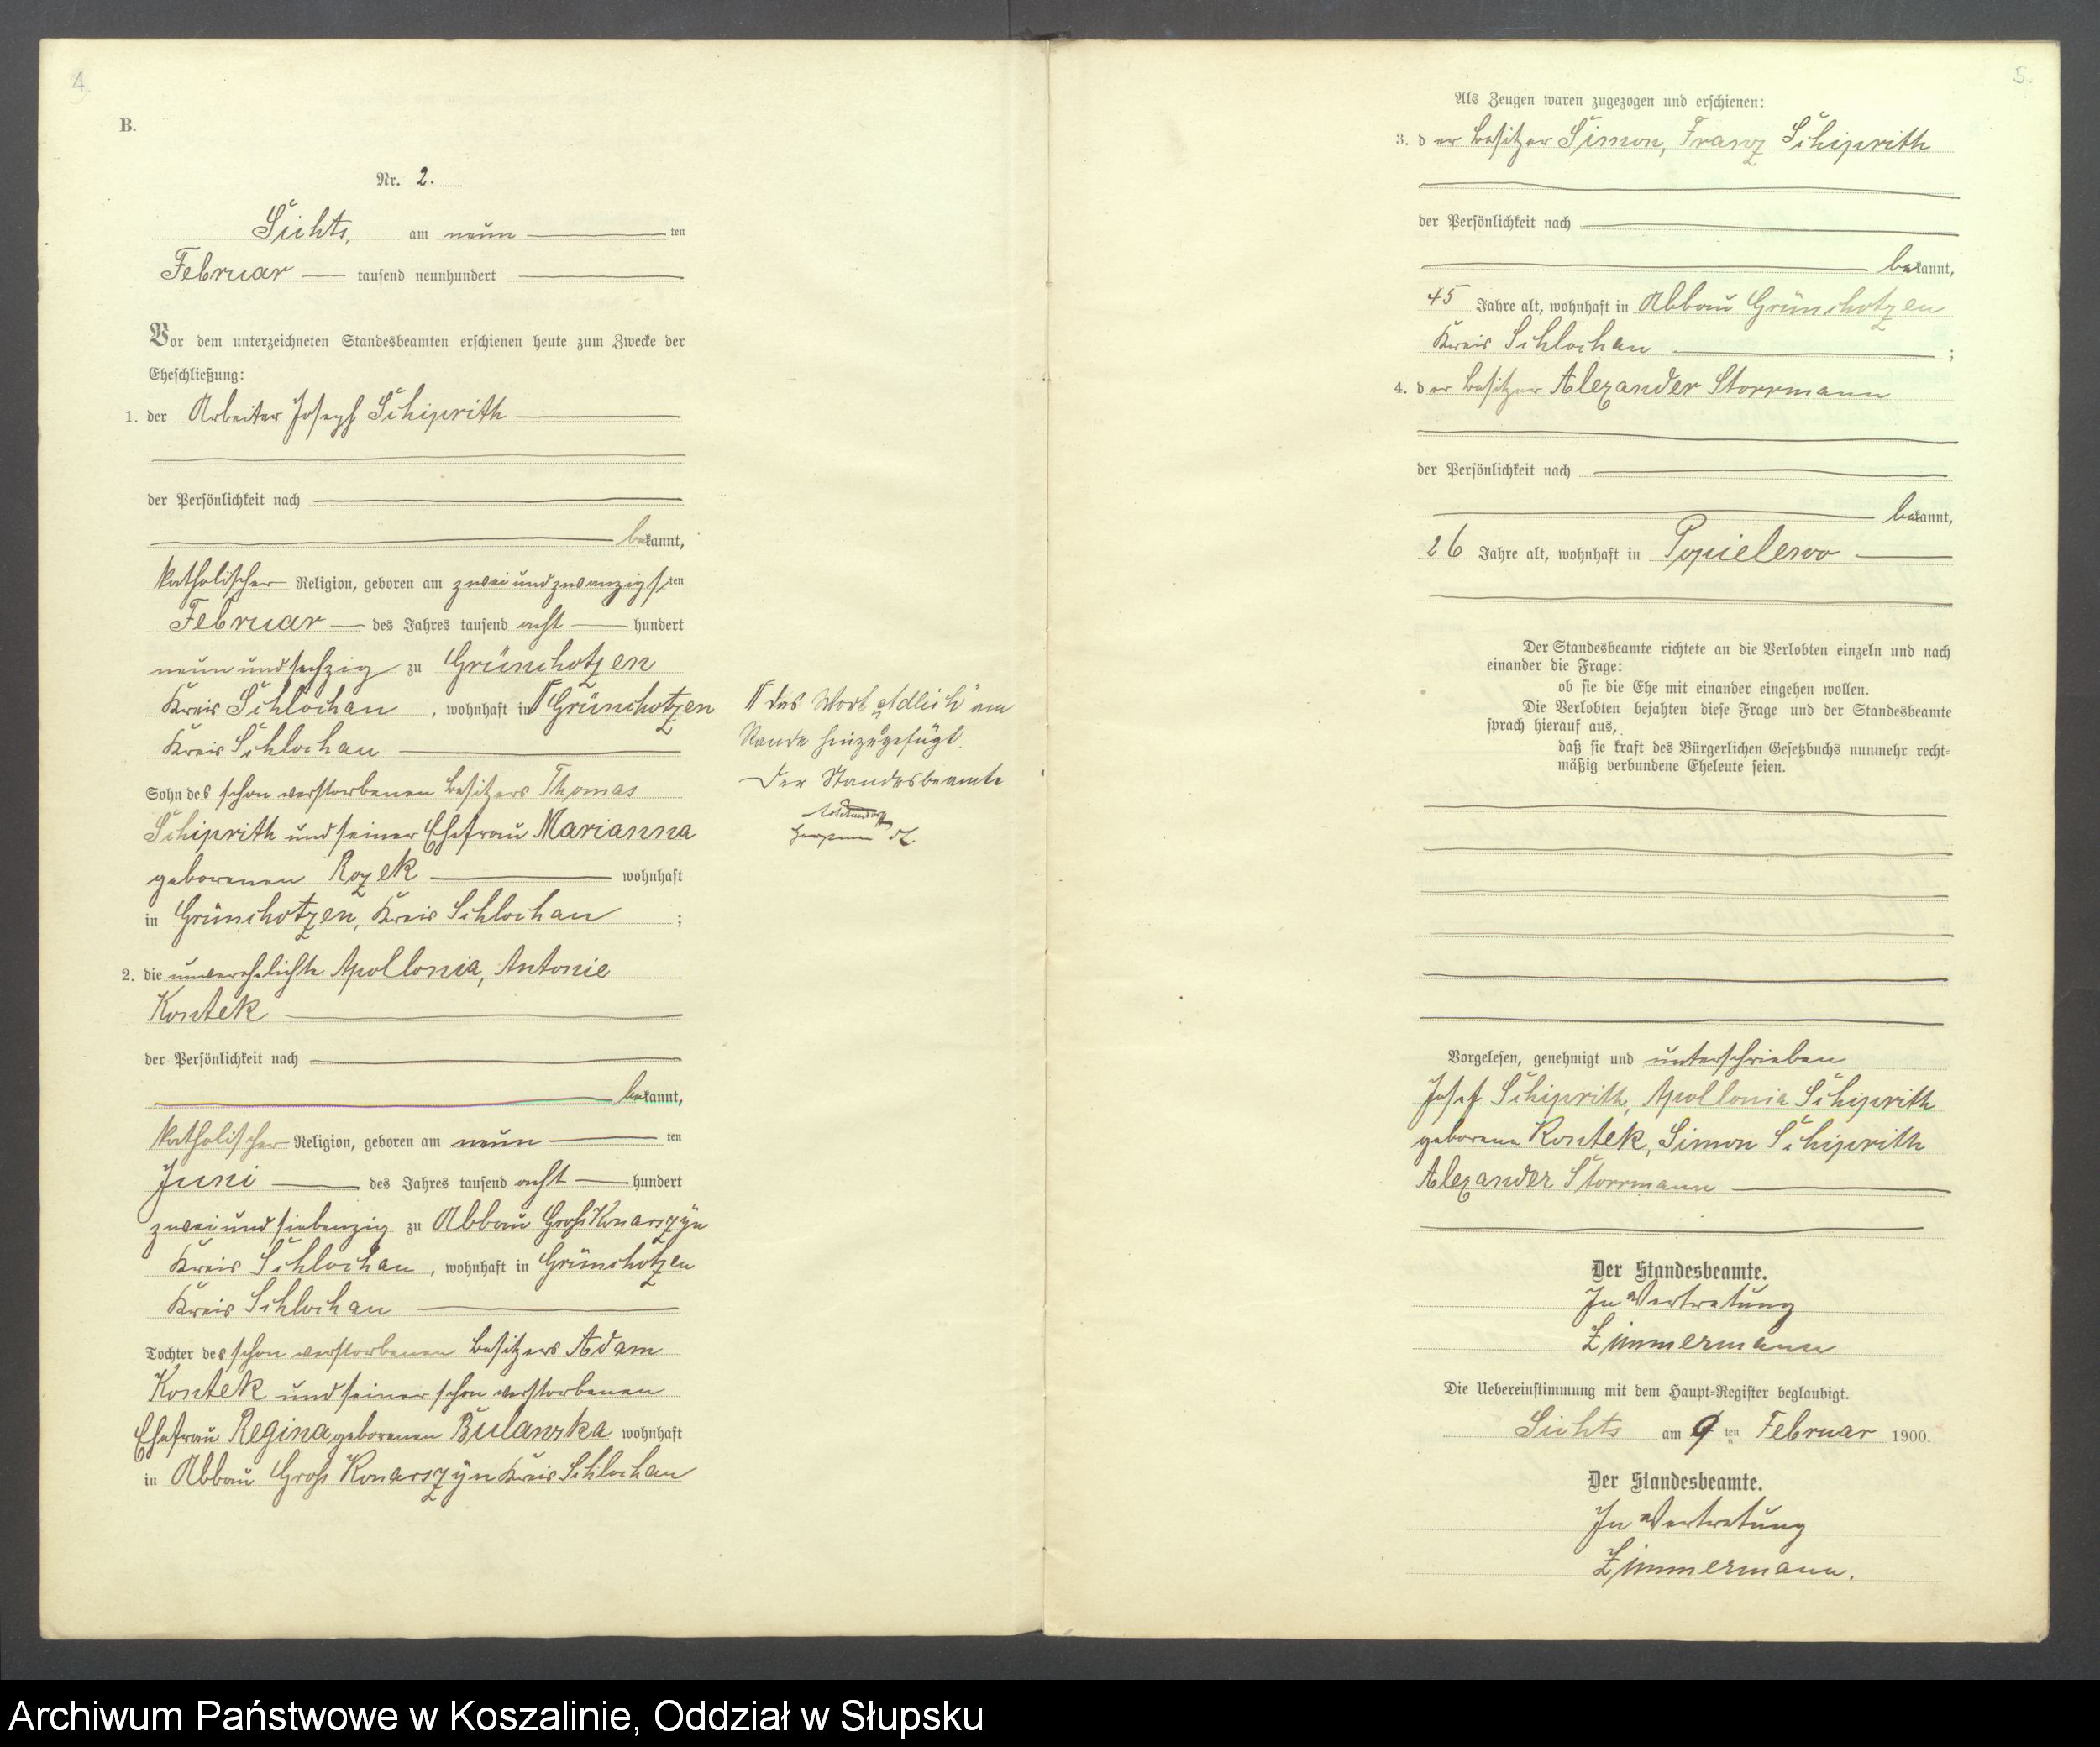 4.
B.
Nr. 2.
Sichts, am neun ten
Februar tausend neunhundert
Vor dem unterzeichneten Standesbeamten erschienen heute zum Zwecke der
Eheschließung:
1. der Arbeiter Joseph Schiprith
der Persönlichkeit nach
bekannt,
katholischer Religion, geboren am zwei und zwanzigsten
Februar des Jahres tausend acht hundert
neun und sechzig zu Grünchotzen
Kreis Schlochau, wohnhaft in Γ Grünchotzen
Kreis Schlochau
Sohn des schon verstorbenen Besitzers Thomas
Schiprith und seiner Ehefrau Marianna
geborenen Rozek wohnhaft
in Grünchotzen, Kreis Schlochau ;
2. die unverehelichte Apollonia, Antonie
Kontek
der Persönlichkeit nach
bekannt,
katholischer Religion, geboren am neun ten
Juni des Jahres tausend acht hundert
zwei und siebenzig zu Abbau Groß Konarszyn
Kreis Schlochau, wohnhaft in Grünchotzen
Kreis Schlochau
Tochter des schon verstorbenen Besitzers Adam
Kontek und seiner schon verstorbenen
Ehefrau Regina geborenen Bulanska wohnhaft
in Abbau Groß Konarszyn Kreis Schlochau
Γ das Wort „Adlich" am
Rande hinzugefügt.
Der Standesbeamte
5.
Als Zeugen waren zugezogen und erschienen:
3. der Besitzer Simon, Franz Schiprith
der Persönlichkeit nach
bekannt,
45 Jahre alt, wohnhaft in Abbau Grünchotzen
Kreis Schlochau ;
4. der Besitzer Alexander Storrmann
der Persönlichkeit nach
bekannt,
26 Jahre alt, wohnhaft in Popielewo
Der Standesbeamte richtete an die Verlobten einzeln und nach
einander die Frage:
ob sie die Ehe mit einander eingehen wollen.
Die Verlobten bejahten diese Frage und der Standesbeamte
sprach hierauf aus,
daß sie kraft des Bürgerlichen Gesetzbuchs nunmehr recht-
mäßig verbundene Eheleute seien.
Vorgelesen, genehmigt und unterschrieben
Josef Schiprith, Apollonia Schiprith
geborene Kontek, Simon Schiprith
Alexander Storrmann
Der Standesbeamte.
In Vertretung
Zimmermann
Die Uebereinstimmung mit dem Haupt-Register beglaubigt.
Sichts am 9 ten Februar 1900.
Der Standesbeamte.
In Vertretung
Zimmermann.
Archiwum Państwowe w Koszalinie, Oddział w Słupsku